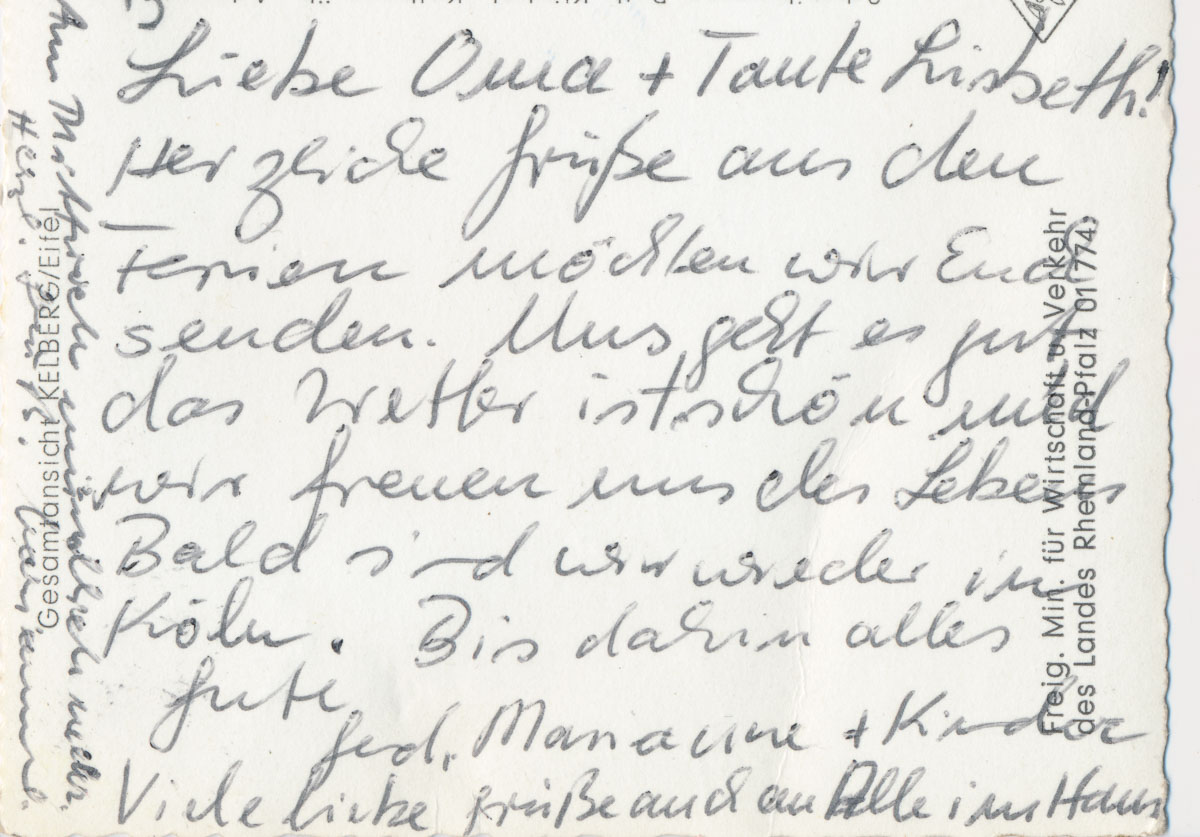 Liebe Oma + Tante Lisbeth!
Herzliche Grüße aus den
Ferien möchten wir Euch
senden. Uns geht es gut
das Wetter ist schön und
wir freuen uns des Lebens
Bald sind wir wieder in
Köln. Bis dahin alles
Gute
Marianne + Kinder
Viele liebe Grüße auch an Alle im Haus
Gesamtansicht KELBERG/Eifel
Freig. Min. für Wirtschaft u. Verkehr
des Landes Rheinland-Pfalz 01774